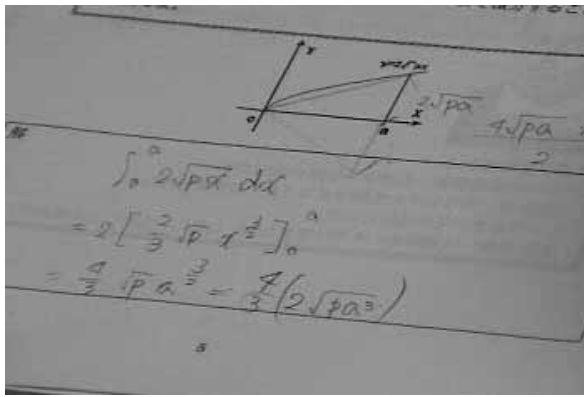 Y
y=2√px
2√pa
O
a
X
4√pa
2
∫₀ᵃ 2√px dx
= 2 [ 2/3 √p x^{3/2} ]₀ᵃ
= 4/3 √p a^{3/2} = 4/3 (2√pa³)